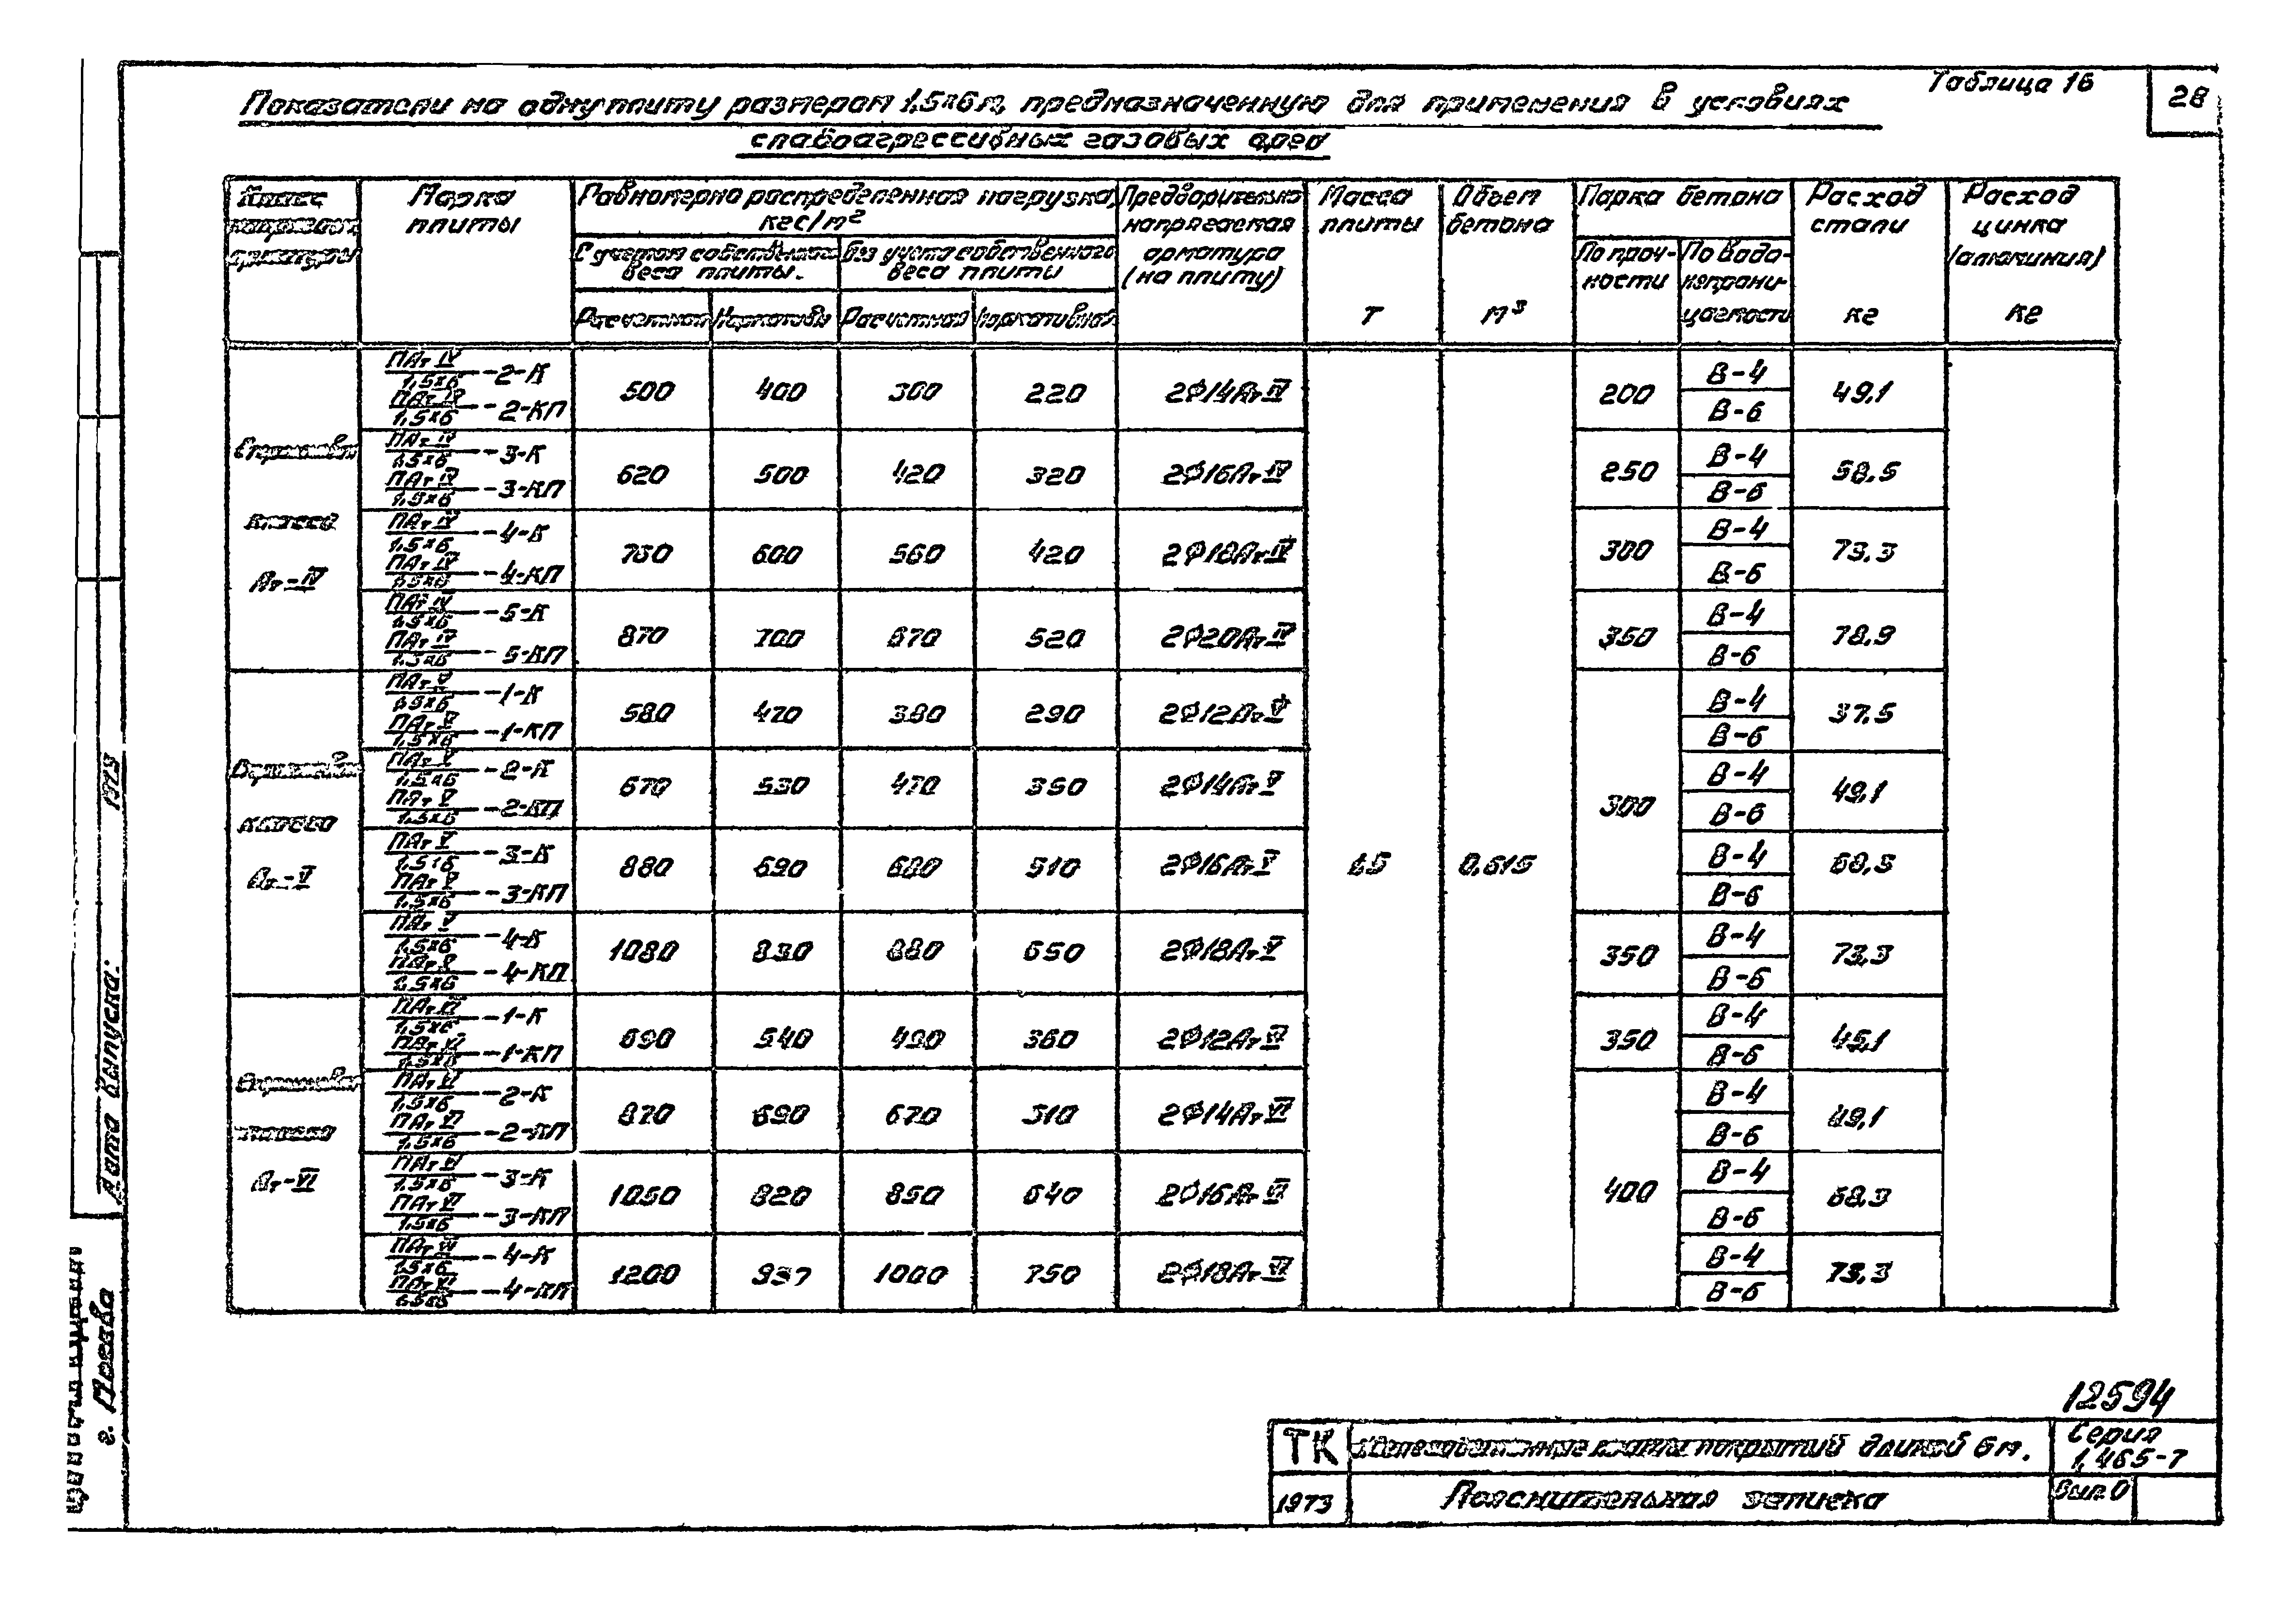 Таблица 16
28
Показатели на одну плиту размером 1,5×6м, предназначенную для применения в условиях
слабоагрессивных газовых сред
Класс напрягаем. арматуры | Марка плиты | Равномерно распределенная нагрузка, кгс/м² | Предварительно напрягаемая арматура (на плиту) | Масса плиты Т | Объем бетона м³ | Марка бетона | Расход стали кг | Расход цинка (алюминия) кг
С учетом собственного веса плиты. | Без учета собственного веса плиты | По проч- ности | По водо- непрони- цаемости
Расчетная | Нормативн | Расчетная | Нормативная
Стержневая класса Ат-IV
ПАт IV/1,5×6 -2-К | ПАт IV/1,5×6 -2-КП | 500 | 400 | 300 | 220 | 2Ф14Ат IV | 200 | В-4 | В-6 | 49,1
ПАт IV/1,5×6 -3-К | ПАт IV/1,5×6 -3-КП | 620 | 500 | 420 | 320 | 2Ф16Ат IV | 250 | В-4 | В-6 | 58.5
ПАт IV/1,5×6 -4-К | ПАт IV/1,5×6 -4-КП | 750 | 600 | 560 | 420 | 2Ф18Ат IV | 300 | В-4 | В-6 | 73.3
ПАт IV/1,5×6 -5-К | ПАт IV/1,5×6 -5-КП | 870 | 700 | 670 | 520 | 2Ф20Ат IV | 350 | В-4 | В-6 | 78.9
Стержневая класса Ат-V
ПАт V/1,5×6 -1-К | ПАт V/1,5×6 -1-КП | 580 | 470 | 380 | 290 | 2Ф12Ат V | 300 | В-4 | В-6 | 37.5
ПАт V/1,5×6 -2-К | ПАт V/1,5×6 -2-КП | 670 | 530 | 470 | 350 | 2Ф14Ат V | В-4 | В-6 | 49,1
ПАт V/1,5×6 -3-К | ПАт V/1,5×6 -3-КП | 880 | 690 | 680 | 510 | 2Ф16Ат V | 1,5 | 0,615 | В-4 | В-6
ПАт V/1,5×6 -4-К | ПАт V/1,5×6 -4-КП | 1080 | 830 | 880 | 650 | 2Ф18Ат V | 350 | В-4 | В-6 | 73,3
Стержневая класса Ат-VI
ПАт VI/1,5×6 -1-К | ПАт VI/1,5×6 -1-КП | 690 | 540 | 490 | 360 | 2Ф12Ат VI | 350 | В-4 | В-6 | 45,1
ПАт VI/1,5×6 -2-К | ПАт VI/1,5×6 -2-КП | 870 | 690 | 670 | 510 | 2Ф14Ат VI | 400 | В-4 | В-6 | 49,1
ПАт VI/1,5×6 -3-К | ПАт VI/1,5×6 -3-КП | 1050 | 820 | 850 | 640 | 2Ф16Ат VI | В-4 | В-6
ПАт VI/1,5×6 -4-К | ПАт VI/1,5×6 -4-КП | 1200 | 937 | 1000 | 750 | 2Ф18Ат VI | В-4 | В-6 | 73,3
Дата выпуска: 1973
г. Москва
12594
ТК
плиты покрытий длиной 6 м.
Серия
1,465-7
1973
Пояснительная записка
Вып 0